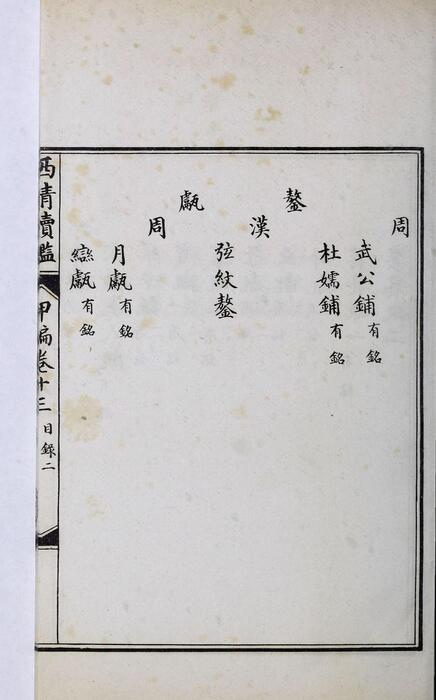 周
武公鋪有銘
杜嬬鋪有銘
鏊
漢
弦紋鏊
甗
周
月甗有銘
䜌甗有銘
西清續鑑 甲編卷十三 目録二